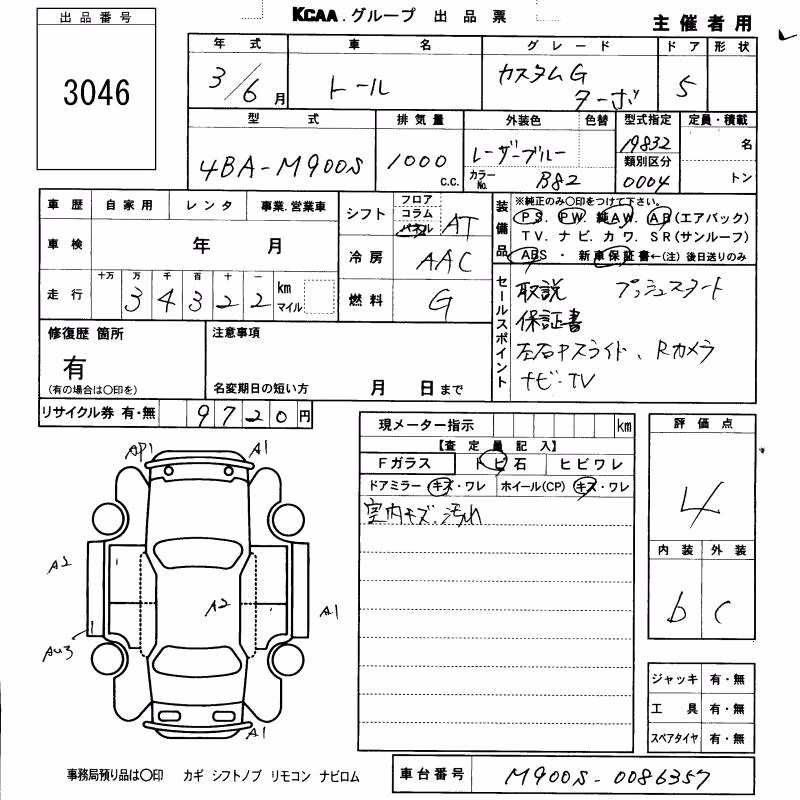 出品番号
3046
KCAA.グループ 出品票
主催者用
年式 車名 グレード ドア 形状
3/6月 トール カスタムG ターボ 5
型式 排気量 外装色 色替 型式指定 定員・積載
4BA-M900S 1000 C.C. レーザーブルー 19832 名
カラーNo. B82 類別区分 0004 トン
車歴 自家用 レンタ 事業.営業車
車検 年 月
走行 十万 万 千 百 十 一 km マイル
3 4 3 2 2
シフト フロア コラム パネル AT
冷房 AAC
燃料 G
装備品
※純正のみ〇印をつけて下さい。
PS. PW. 純AW. AB(エアバック)
TV. ナビ. カワ. SR(サンルーフ)
ABS ・ 新車保証書←(注)後日送りのみ
セールスポイント
取説 プッシュスタート
保証書
左右Pスライド、Rカメラ
ナビ・TV
修復歴 箇所
有
(有の場合は〇印を)
注意事項
名変期日の短い方 月 日まで
リサイクル券 有・無 9720円
現メーター指示 km
【査定員記入】
Fガラス トビ石 ヒビワレ
ドアミラー キズ・ワレ ホイール(CP) キズ・ワレ
室内キズ、汚れ
評価点
4
内装 外装
b C
AP1 A1
A2
A2 A1
AU3
A1
ジャッキ 有・無
工具 有・無
スペアタイヤ 有・無
事務局預り品は〇印 カギ シフトノブ リモコン ナビロム
車台番号 M900S-0086357